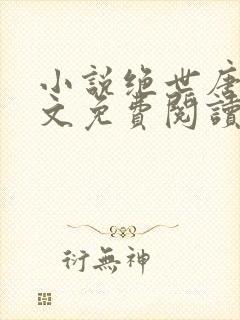 小説绝世唐
文免費閱讀
衍無神